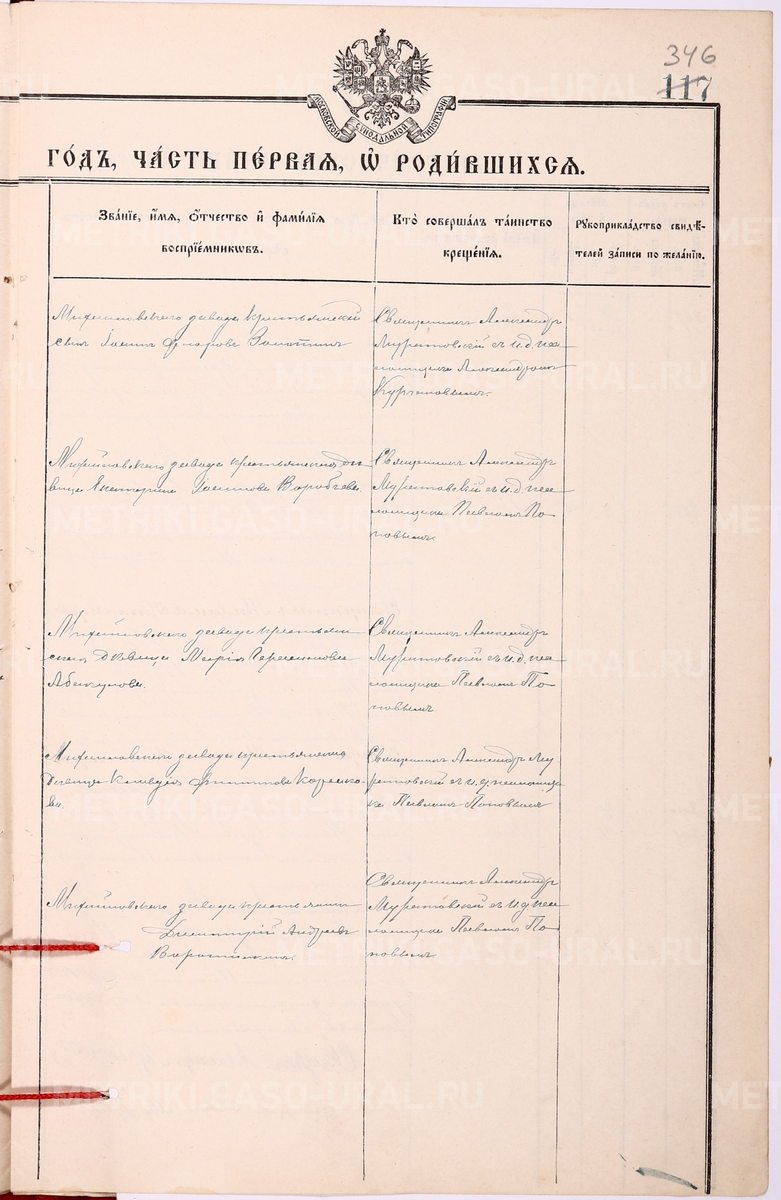 346
117
МОСКОВСКОЙ СѴНОДАЛЬНОЙ ТИПОГРАФІИ
ГО́ДЪ, ЧА́СТЬ ПЕ́РВАЯ, Ѽ РОДИ́ВШИХСЯ.
Зва́нїе, и҆́мя, ѻ҆́тчество и҆ фами́лїя
воспрїе́мникѡвъ.
Кто̀ соверша́лъ та́инство
креще́нїя.
Рꙋкоприкла́дство свидѣ́-
телей за́писи по жела́нїю.
Михайловского завода крестьянскій
сынъ Іоаннъ
Священникъ Александръ
Муратовскій съ и. д. пса-
ломщика Александромъ
Михайловского завода крестьянская дѣ-
вица Екатерина Іоаннова Воробьева.
Священникъ Александръ
Муратовскій съ и. д. пса-
ломщика Павломъ По-
повымъ.
Михайловского завода крестьян-
ская дѣвица Марія Герасимова
Абакумова.
Священникъ Александръ
Муратовскій съ и. д. пса-
ломщика Павломъ По-
повымъ
Михайловского завода крестьянская
дѣвица Клавдія Филиппова
Священникъ Александръ Му-
ратовскій съ и. д. псаломщи-
ка Павломъ Поповымъ
Михайловского завода крестьянинъ
Димитрій Андреевъ
Священникъ Александръ
Муратовскій съ и. д. пса-
ломщика Павломъ По-
повымъ
METRIKI.GASO-URAL.RU